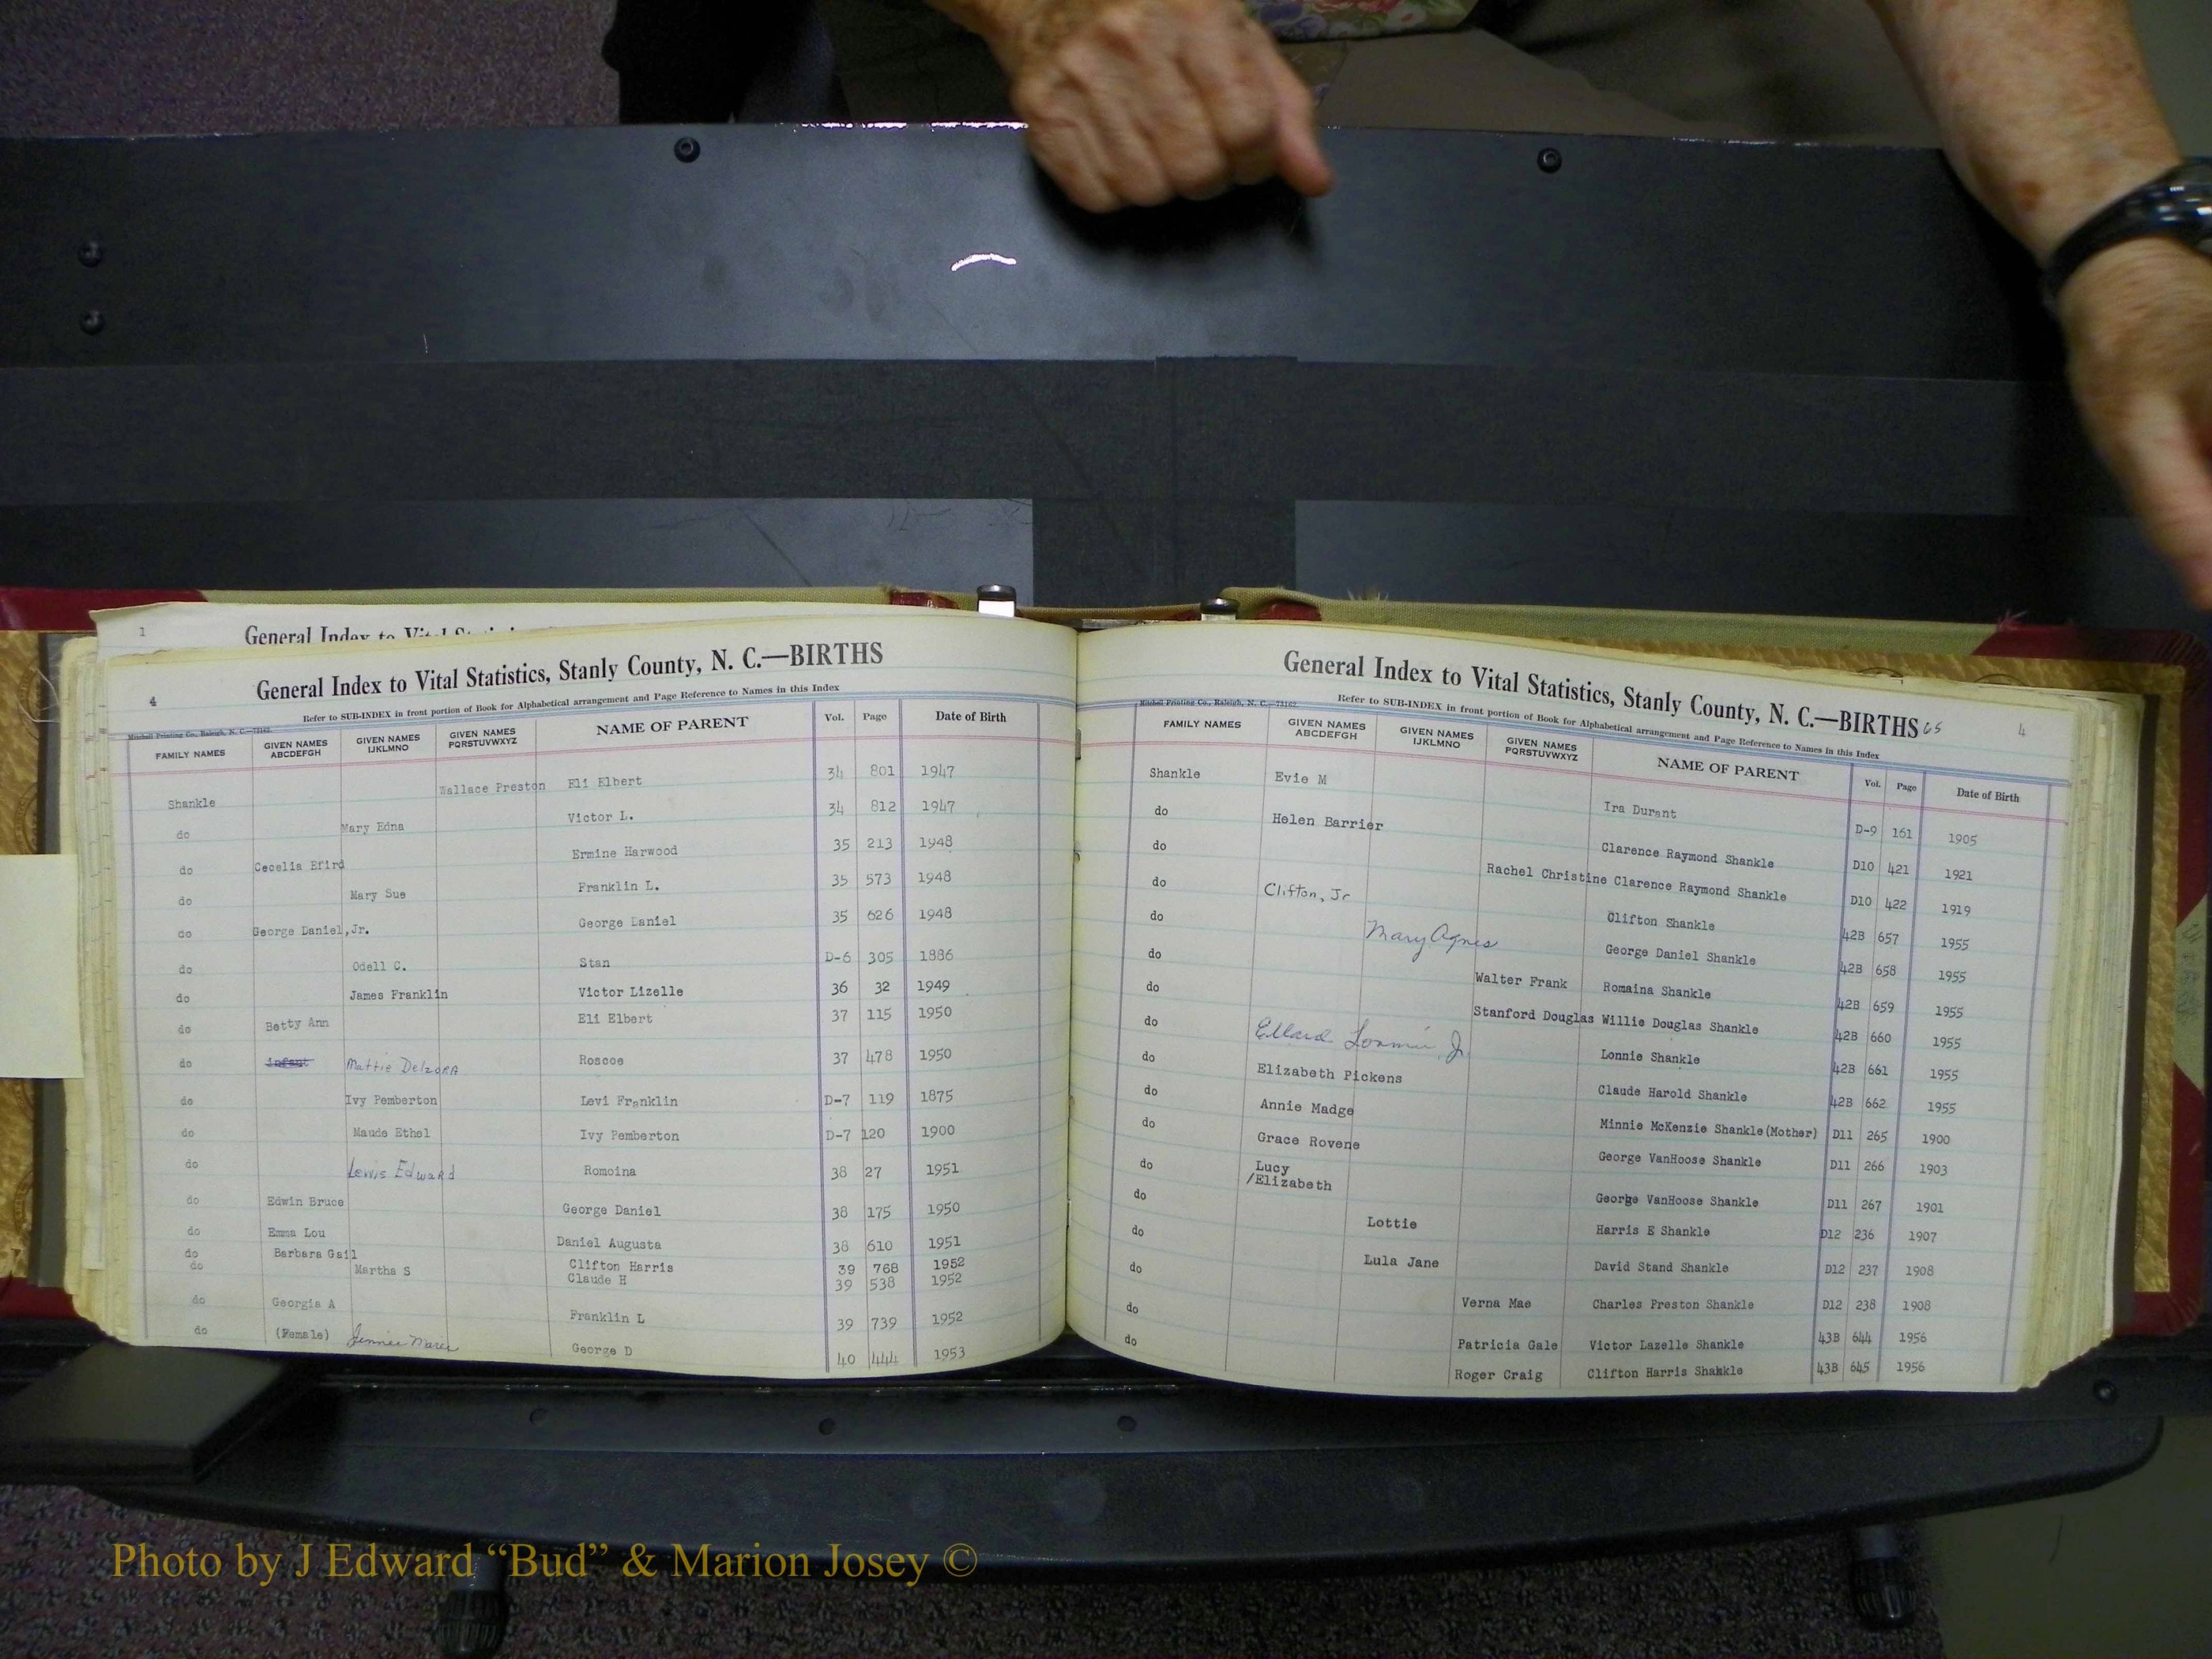 1
General Index to
4
General Index to Vital Statistics, Stanly County, N. C.—BIRTHS
Refer to SUB-INDEX in front portion of Book for Alphabetical arrangement and Page Reference to Names in this Index
Mitchell Printing Co., Raleigh, N. C.—73162
FAMILY NAMES GIVEN NAMES ABCDEFGH GIVEN NAMES IJKLMNO GIVEN NAMES PQRSTUVWXYZ NAME OF PARENT Vol. Page Date of Birth
Shankle Wallace Preston Eli Elbert 34 801 1947
do Mary Edna Victor L. 34 812 1947
do Cecelia Efird Ermine Harwood 35 213 1948
do Mary Sue Franklin L. 35 573 1948
do George Daniel,Jr. George Daniel 35 626 1948
do Odell C. Stan D-6 305 1886
do James Franklin Victor Lizelle 36 32 1949
do Betty Ann Eli Elbert 37 115 1950
do infant Mattie Delzora Roscoe 37 478 1950
do Ivy Pemberton Levi Franklin D-7 119 1875
do Maude Ethel Ivy Pemberton D-7 120 1900
do Lewis Edward Romoina 38 27 1951
do Edwin Bruce George Daniel 38 175 1950
do Emma Lou Daniel Augusta 38 610 1951
do Barbara Gail Clifton Harris 39 768 1952
do Martha S Claude H 39 538 1952
do Georgia A Franklin L 39 739 1952
do (Female) Jennie Marie George D 40 444 1953
General Index to Vital Statistics, Stanly County, N. C.—BIRTHS 65 4
Refer to SUB-INDEX in front portion of Book for Alphabetical arrangement and Page Reference to Names in this Index
Mitchell Printing Co., Raleigh, N. C.—73162
FAMILY NAMES GIVEN NAMES ABCDEFGH GIVEN NAMES IJKLMNO GIVEN NAMES PQRSTUVWXYZ NAME OF PARENT Vol. Page Date of Birth
Shankle Evie M Ira Durant D-9 161 1905
do Helen Barrier Clarence Raymond Shankle D10 421 1921
do Rachel Christine Clarence Raymond Shankle D10 422 1919
do Clifton, Jr Clifton Shankle 42B 657 1955
do Mary Agnes George Daniel Shankle 42B 658 1955
do Walter Frank Romaina Shankle 42B 659 1955
do Stanford Douglas Willie Douglas Shankle 42B 660 1955
do Ellard Lonnie, Jr. Lonnie Shankle 42B 661 1955
do Elizabeth Pickens Claude Harold Shankle 42B 662 1955
do Annie Madge Minnie McKenzie Shankle(Mother) D11 265 1900
do Grace Rovene George VanHoose Shankle D11 266 1903
do Lucy /Elizabeth George VanHoose Shankle D11 267 1901
do Lottie Harris E Shankle D12 236 1907
do Lula Jane David Stand Shankle D12 237 1908
do Verna Mae Charles Preston Shankle D12 238 1908
do Patricia Gale Victor Lazelle Shankle 43B 644 1956
do Roger Craig Clifton Harris Shankle 43B 645 1956
Photo by J Edward “Bud” & Marion Josey ©